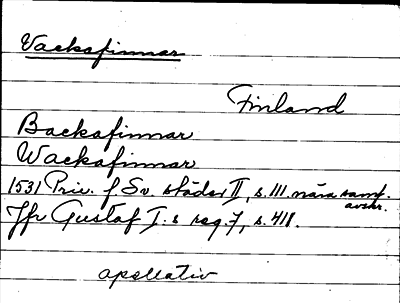 Vackafinnar
Finland
Backafinnar
Wackafinnar
1531 Priv. f Sv. städer II, s. 111. nära samt.
avskr.
Jfr Gustaf I:s reg. 7, s. 418.
apellativ